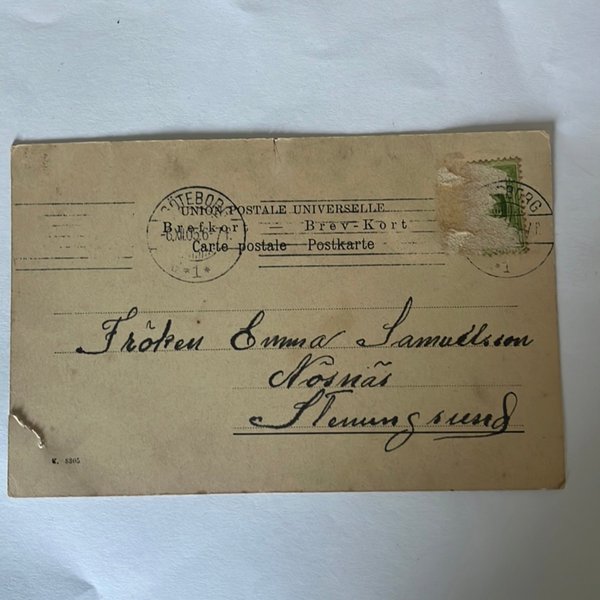 GÖTEBORG
6.XII.05.6
*1*
UNION POSTALE UNIVERSELLE
Brefkort — Brev-Kort
Carte postale Postkarte
BERG
1
Fröken Emma Samuelsson
Nösnäs
Stenungsund